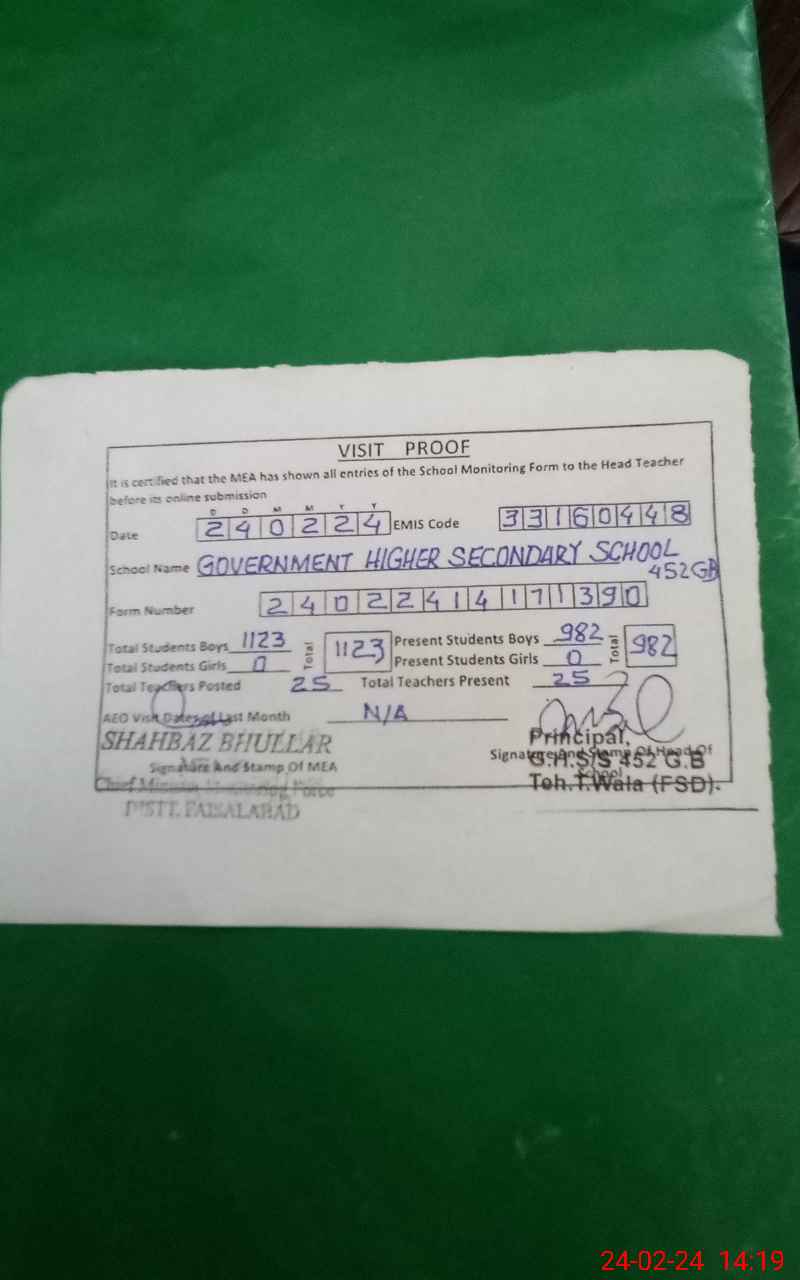 VISIT PROOF
It is certified that the MEA has shown all entries of the School Monitoring Form to the Head Teacher
before its online submission
D D M M Y Y
Date 240224 EMIS Code 33160448
School Name GOVERNMENT HIGHER SECONDARY SCHOOL
452GB
Form Number 240224141
Total Students Boys 1123 Total 1123 Present Students Boys 982 Total 982
Total Students Girls 0 Present Students Girls 0
Total Teachers Posted 25 Total Teachers Present 25
AEO Visit Dates of Last Month N/A
SHAHBAZ BHULLAR
Signature And Stamp Of MEA
Chief Minister Monitoring Force
DISTT. FAISALABAD
Principal,
Signature And Stamp Of Head Of
School
G.H.S/S 452 G.B
Teh.T.Wala (FSD).
24-02-24 14:19